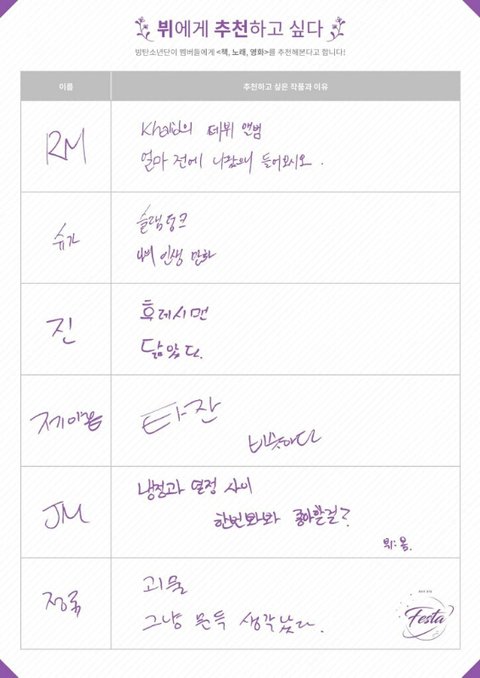 뷔에게 추천하고 싶다
방탄소년단이 멤버들에게 <책, 노래, 영화>를 추천해본다고 합니다!
이름 추천하고 싶은 작품과 이유
RM
Khalid의 데뷔 앨범
얼마 전에 나왔으니 들어보시오.
슈가
슬램덩크
나의 인생 만화
진
후레시맨
닮았다.
제이홉
타잔
비슷하다
JM
냉정과 열정 사이
한번봐봐 좋아할걸?
뷔:움.
정국
괴물
그냥 문득 생각났다.
Festa